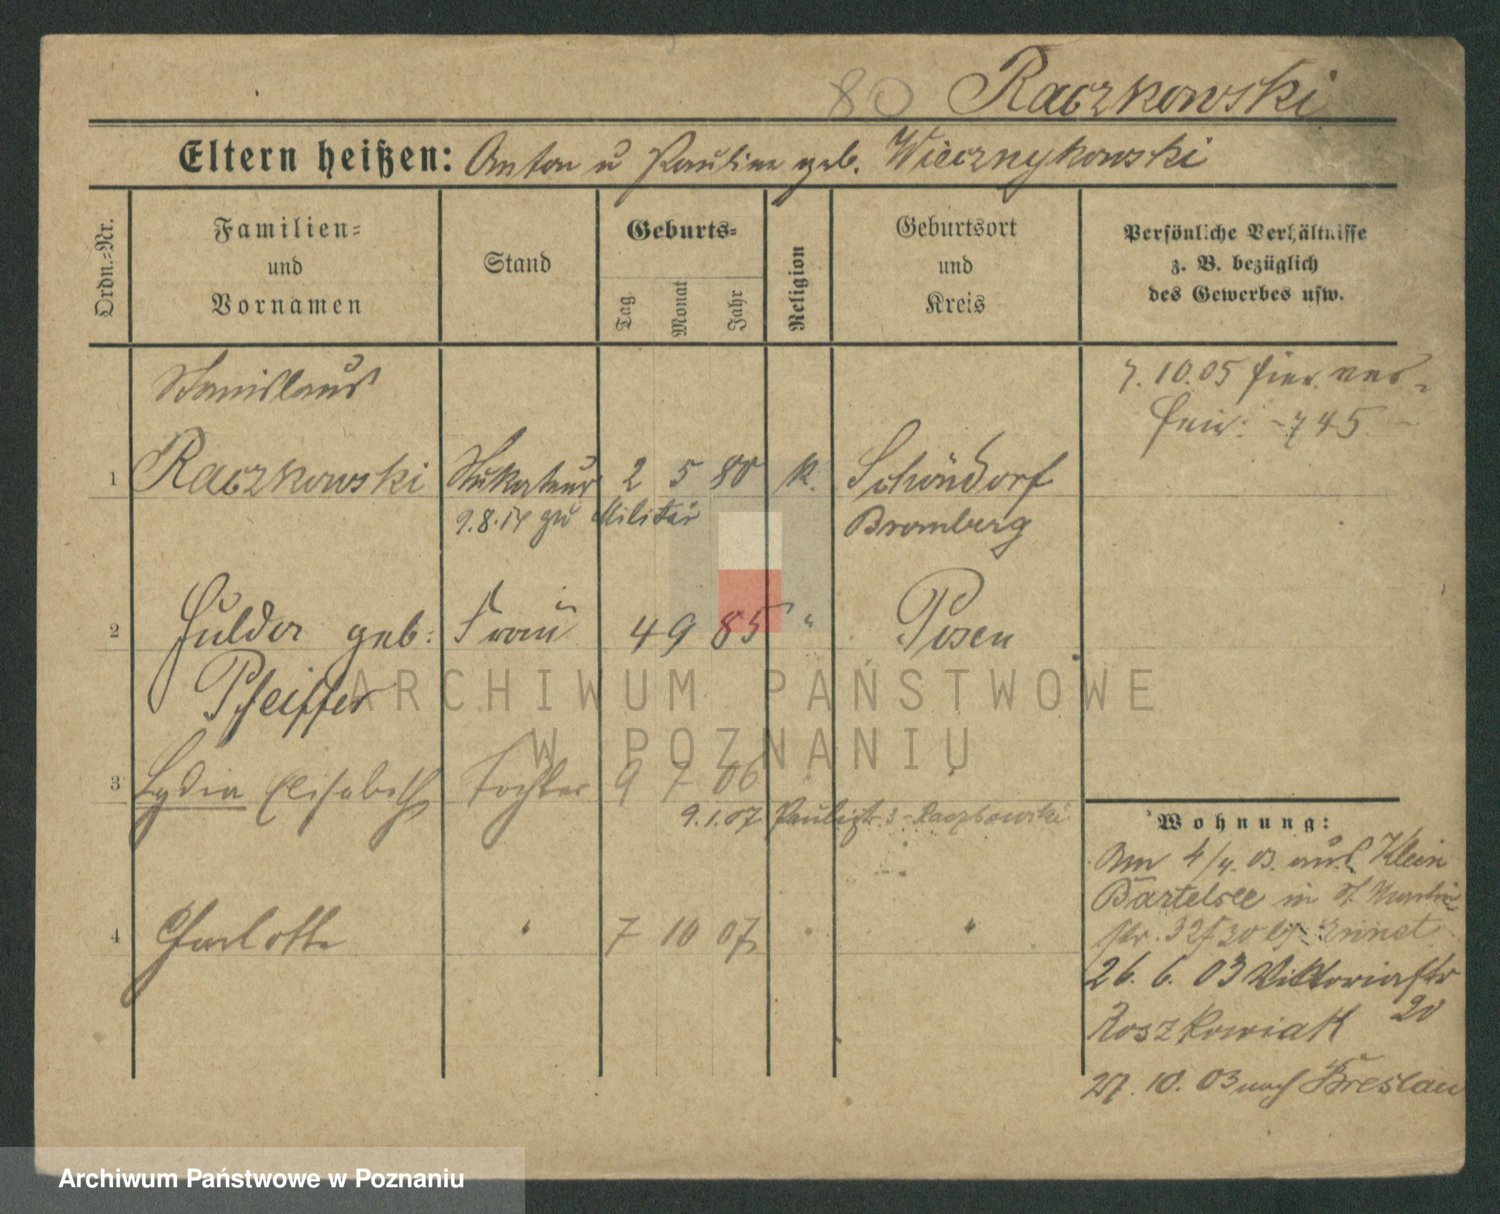 80 Raczkowski
Eltern heißen: Anton u Pauline geb. Wiecznykowski
Ordn.=Nr.
Familien=
und
Vornamen
Stand
Geburts=
Tag
Monat
Jahr
Religion
Geburtsort
und
Kreis
Persönliche Verhältnisse
z. B. bezüglich
des Gewerbes usw.
Stanislaus
1 Raczkowski Stukateur 2 5 80 k. Schöndorf
9.8.14 zu Militär Bromberg
7.10.05 hier ver=
heir. - 745 -
2 Hulda geb. Frau 4 9 85 " Posen
Pfeiffer
3 Lydia Elisabeth Tochter 9 7 06 "
9.1.07 Paulistr. 3 - Raczkowski
4 Charlotte " 7 10 07 " "
Wohnung:
Am 4/4. 03. aus Klein
Bartelsee in St. Martin
str. 32
26. 6. 03 Viktoriastr
Roszkowiak 20
27. 10. 03 nach Breslau
ARCHIWUM PAŃSTWOWE
W POZNANIU
Archiwum Państwowe w Poznaniu